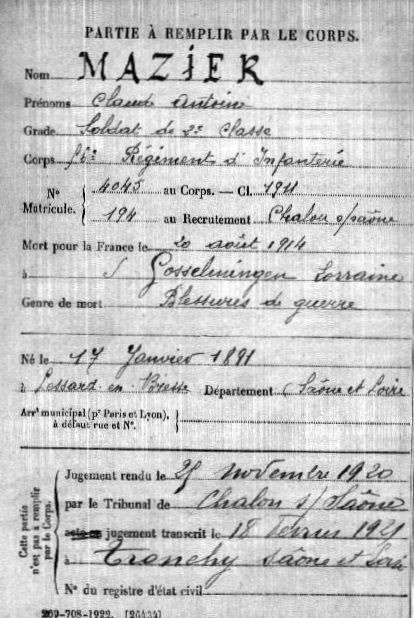 PARTIE À REMPLIR PAR LE CORPS.
Nom MAZIER
Prénoms Claude Antoine
Grade Soldat de 2e Classe
Corps Régiment d'Infanterie
N° Matricule. 4045 au Corps. — Cl. 1911
194 au Recrutement Chalon s/Saône
Mort pour la France le 20 août 1914
à Gosselmingen Lorraine
Genre de mort Blessures de guerre
Né le 17 Janvier 1891
à Lessard-en-Bresse Département Saône et Loire
Arrt municipal (pr Paris et Lyon),
à défaut rue et N°.
Cette partie n'est pas à remplir par le Corps.
Jugement rendu le 25 novembre 1920
par le Tribunal de Chalon s/Saône
acte ou jugement transcrit le 18 Février 1921
à Tronchy Saône et Loire
N° du registre d'état civil
269-708-1922. [26434]